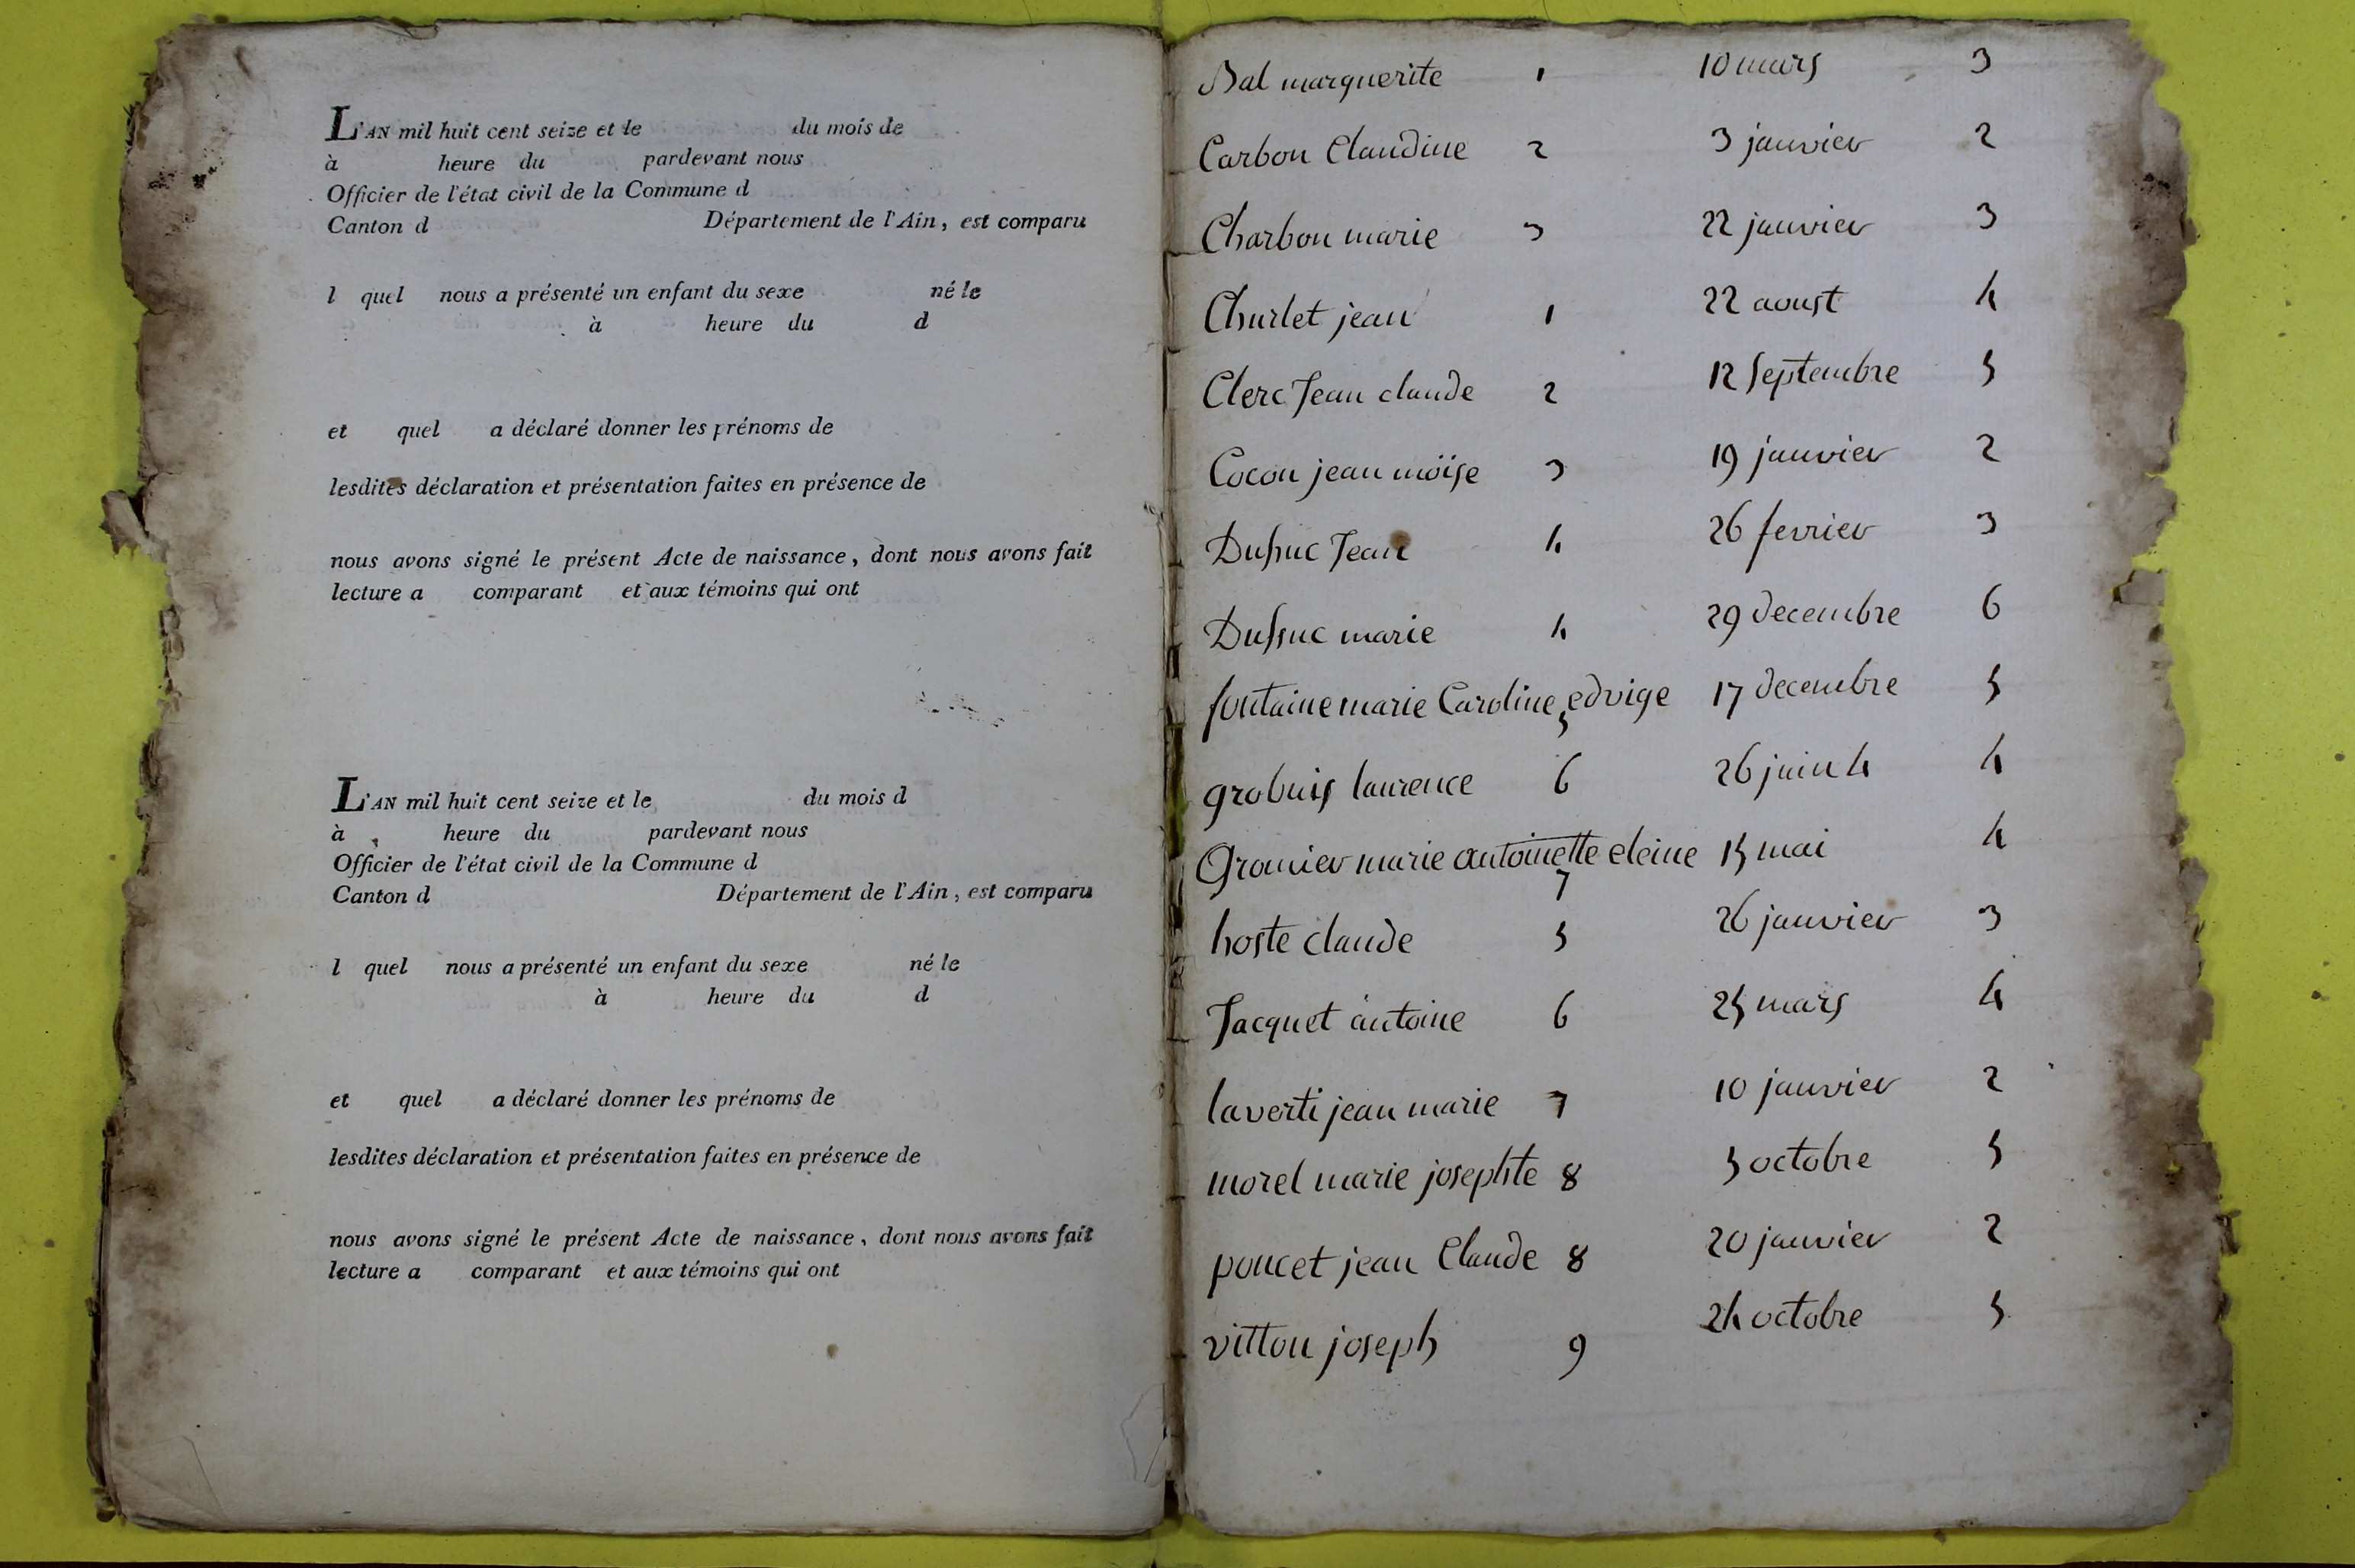 L'AN mil huit cent seize et le du mois de
à heure du pardevant nous
Officier de l'état civil de la Commune d
Canton d Département de l'Ain, est comparu
l quel nous a présenté un enfant du sexe né le
à heure du d
et quel a déclaré donner les prénoms de
lesdites déclaration et présentation faites en présence de
nous avons signé le présent Acte de naissance, dont nous avons fait
lecture a comparant et aux témoins qui ont
L'AN mil huit cent seize et le du mois d
à heure du pardevant nous
Officier de l'état civil de la Commune d
Canton d Département de l'Ain, est comparu
l quel nous a présenté un enfant du sexe né le
à heure du d
et quel a déclaré donner les prénoms de
lesdites déclaration et présentation faites en présence de
nous avons signé le présent Acte de naissance, dont nous avons fait
lecture a comparant et aux témoins qui ont
Bal marguerite 1 10 mars 3
Carbon Claudine 2 3 janvier 2
Charbon marie 3 22 janvier 3
Churlet jean 1 22 aoust 4
Clerc Jean claude 2 12 Septembre 5
Cocon jean moïse 3 19 janvier 2
Dussuc Jean 4 26 fevrier 3
Dussuc marie 4 29 decembre 6
fontaine marie Caroline edvige 5 17 decembre 5
grobuis laurence 6 26 juin 4 4
Gromier marie antoinette eleine 7 15 mai 4
hoste claude 5 26 janvier 3
Jacquet antoine 6 25 mars 4
laverti jean marie 7 10 janvier 2
morel marie josephte 8 5 octobre 5
poncet jean Claude 8 20 janvier 2
vitton joseph 9 24 octobre 5